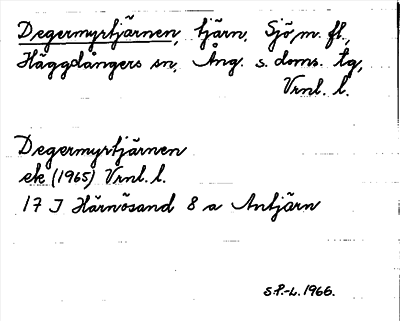 Degermyrtjärnen, tjärn, Sjö, m. fl.,
Häggdångers sn, Ång. s. doms. tg,
Vrnl. l.
Degermyrtjärnen
ek (1965) Vrnl. l.
17 J Härnösand 8 a Antjärn
S.P.-L. 1966.